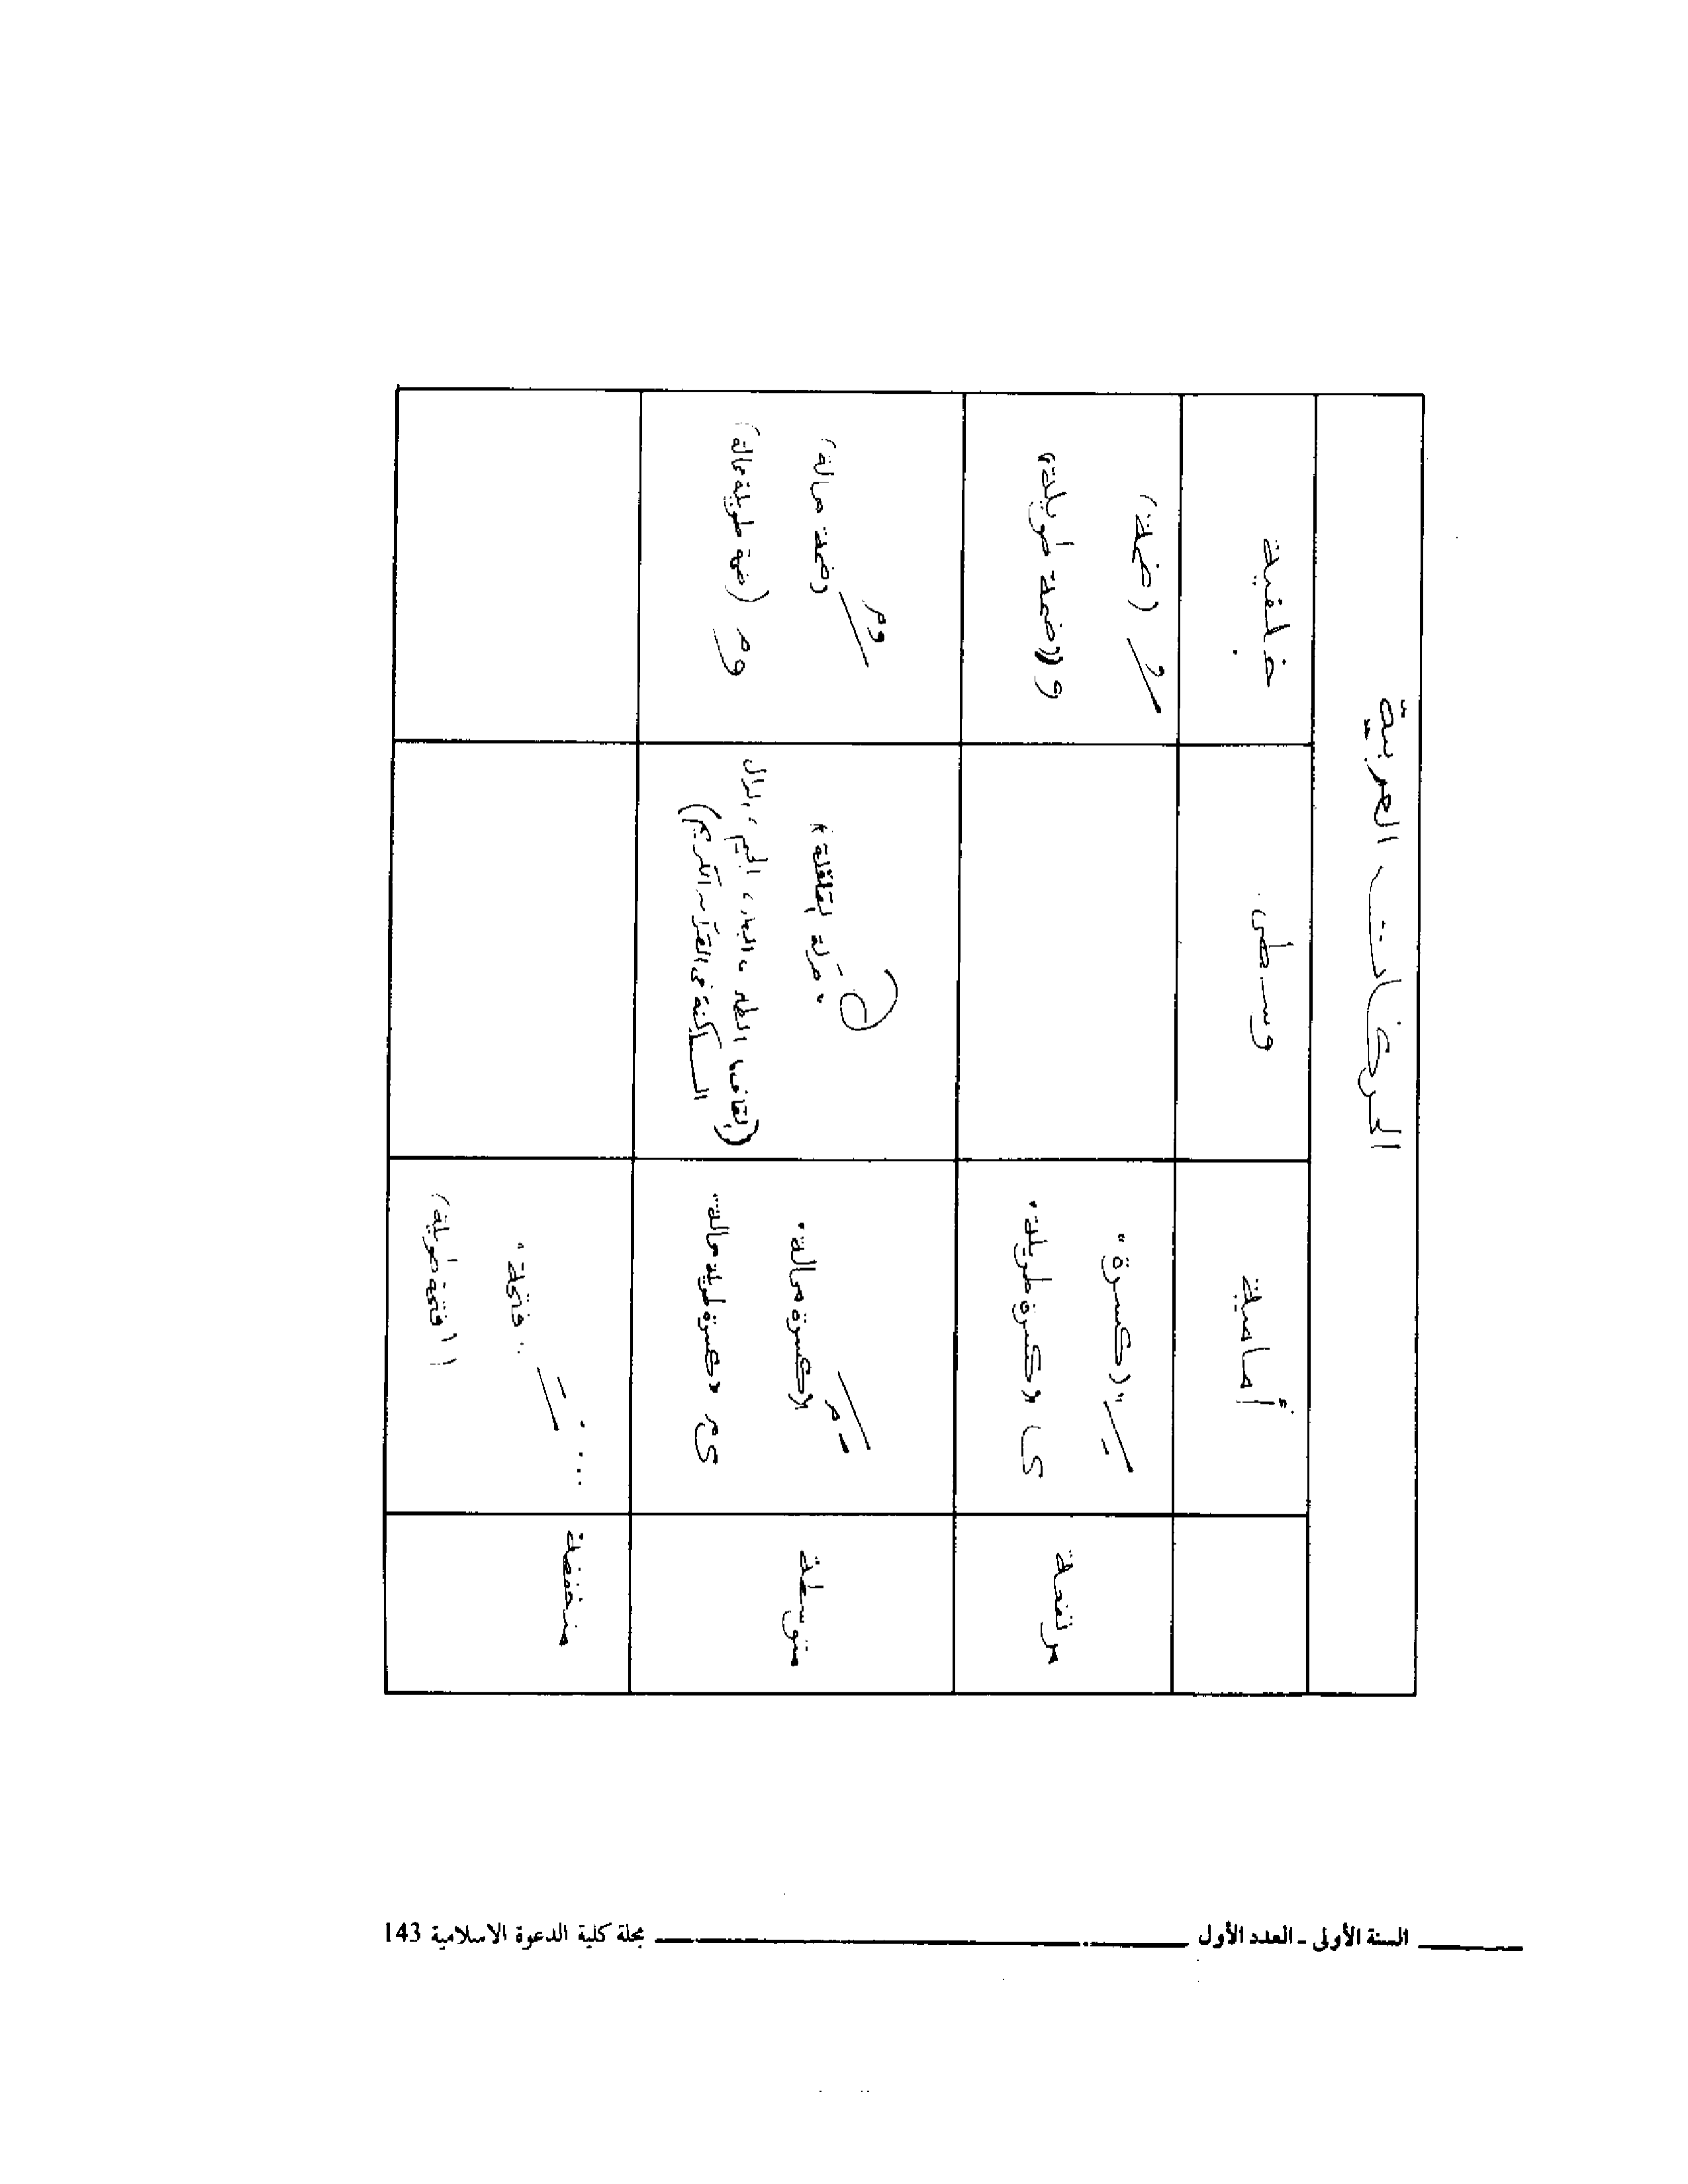 الحركات العربية
أمامية
وسطى
خلفية
مرتفعة
ـِ "(كسرة"
ى «كسرة طويلة»
ـُ (ضمة)
و ((ضمة طويلة»
متوسطة
«كسرة ممالة»
ىم «كسرة طويلة ممالة»
"حركة القلقلة"
السـاكنة في القرآن الكريم)
وم
(ضمة ممالة)
وم (ضمة طويلة ممالة)
منخفضة
ـَ ....
"فتحة"
ا (فتحة طويلة)
السنة الأولى - العدد الأول
مجلة كلية الدعوة الاسلامية 143